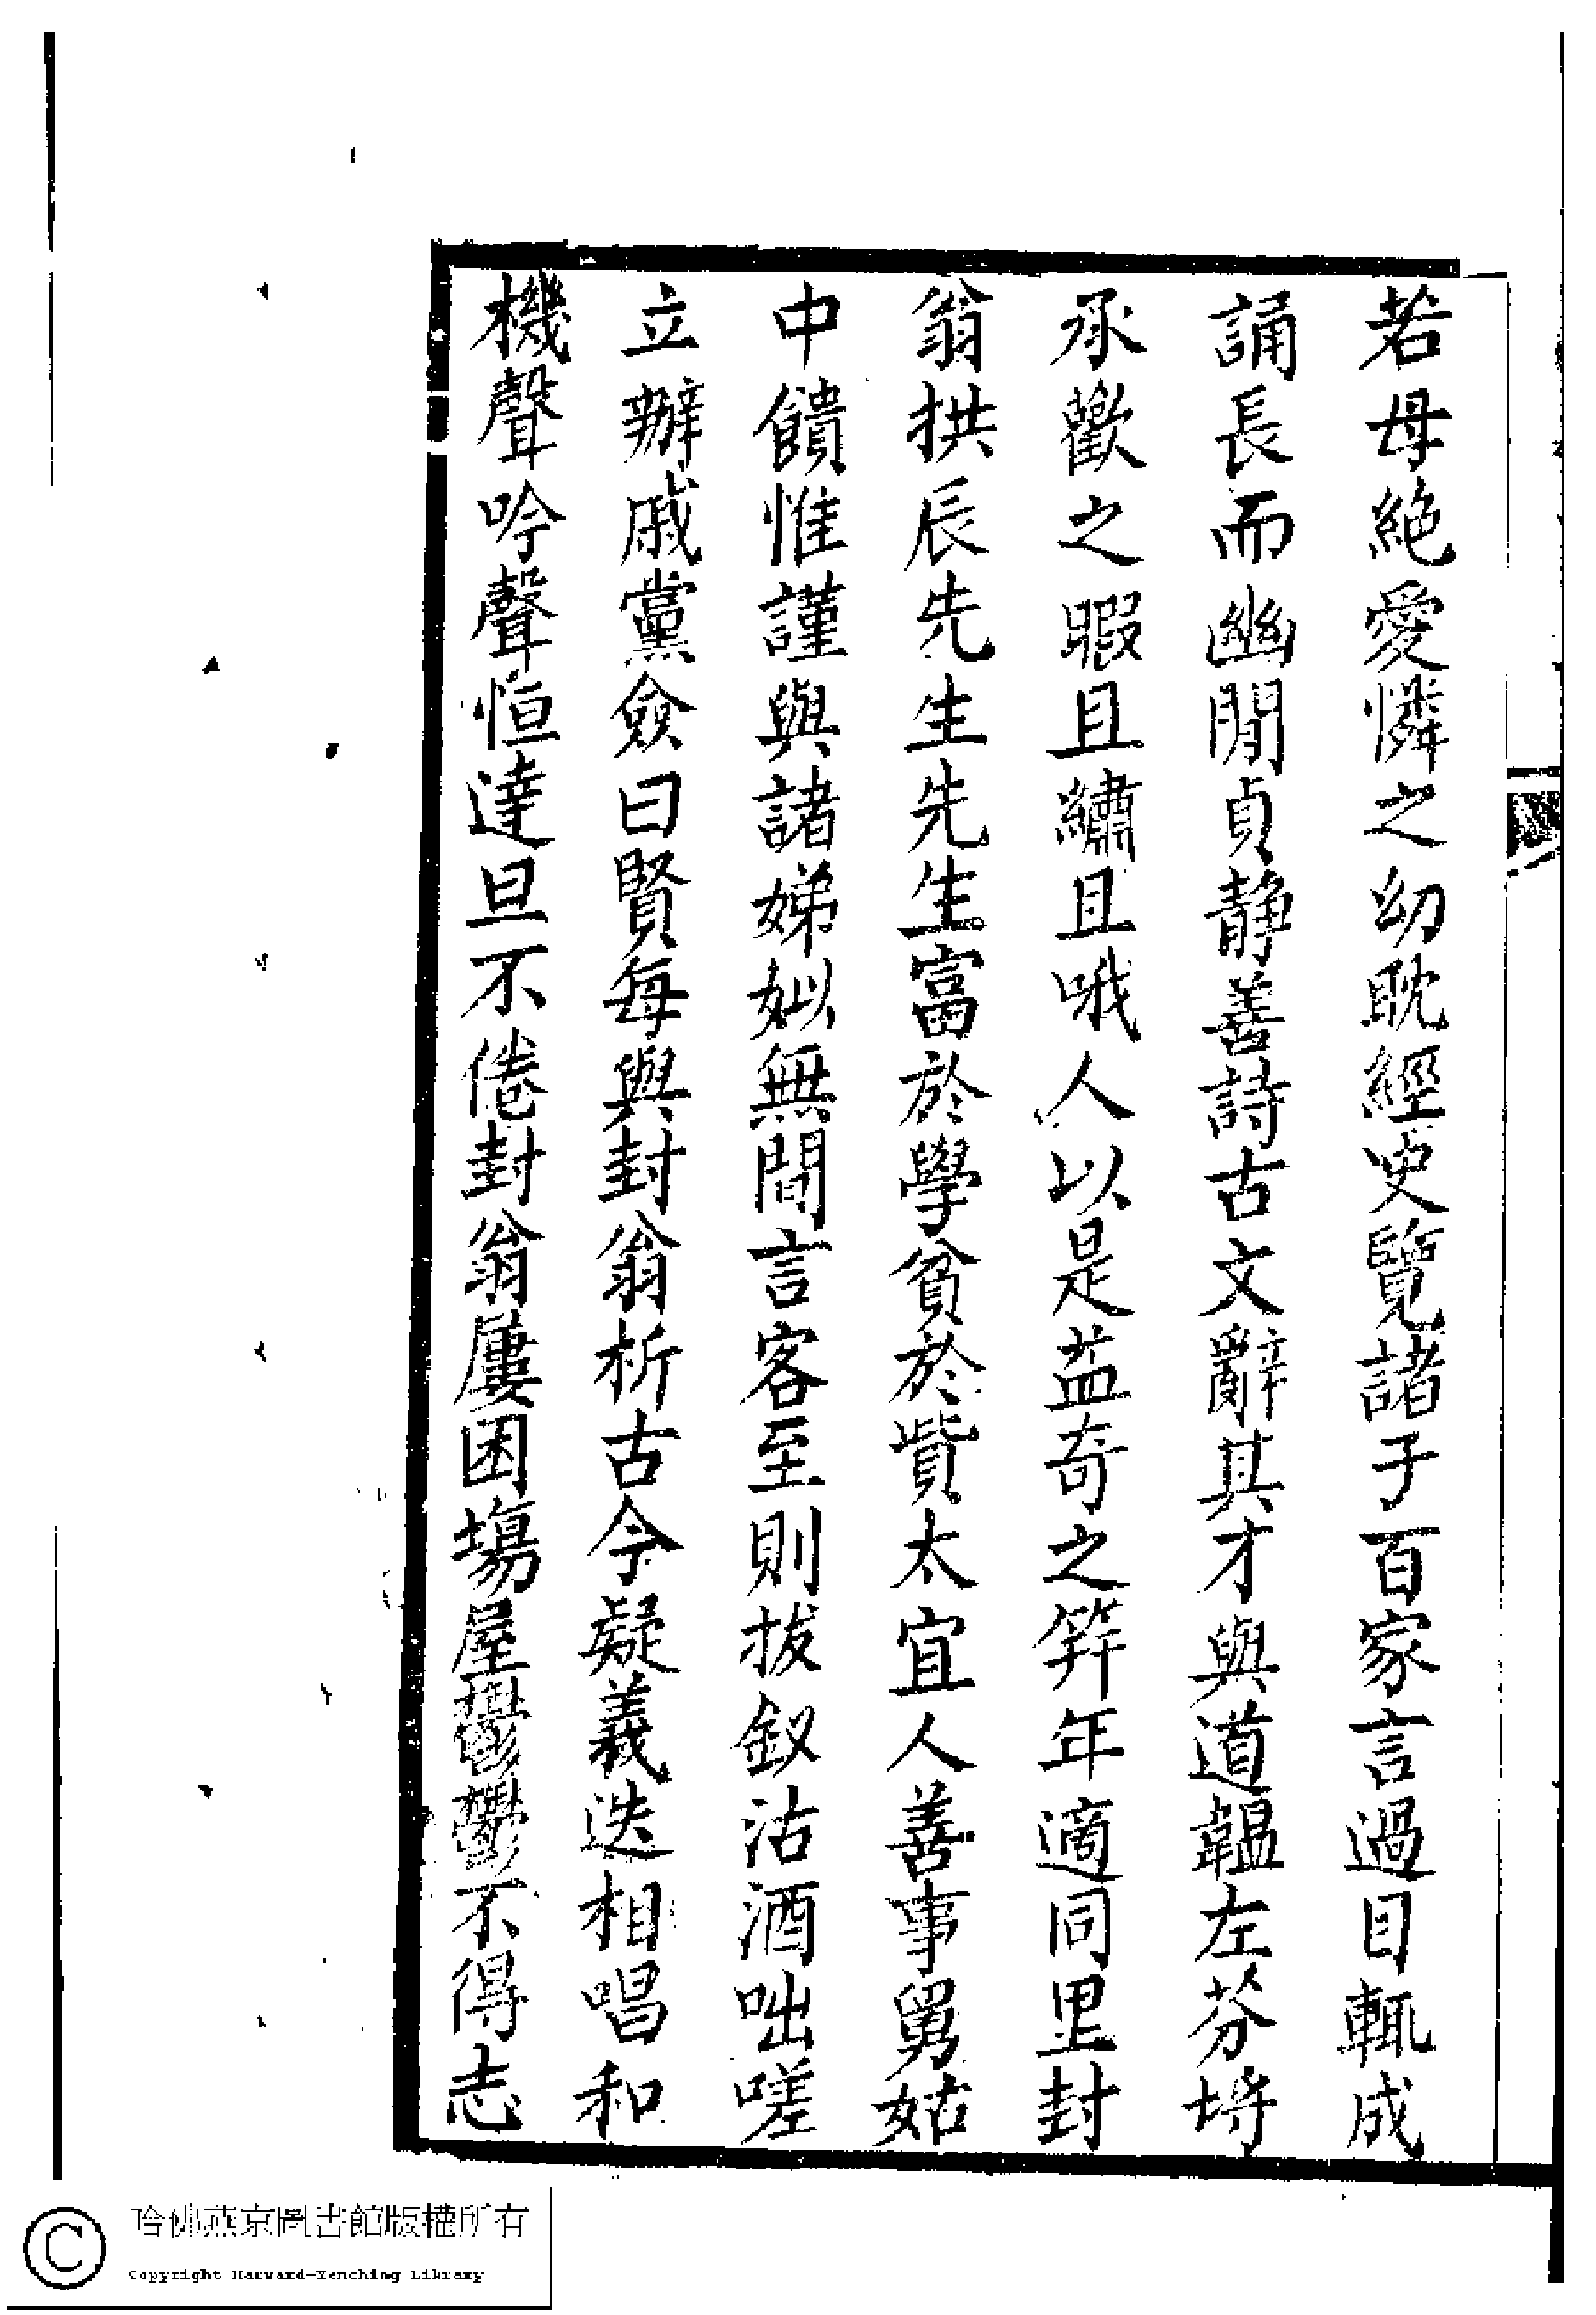 若母絶愛憐之幼耽經史覽諸子百家言過目輒成
誦長而幽閒貞静善詩古文辭其才與道韞左芬埒
承歡之暇且繡且哦人以是益奇之笄年適同里封
翁拱辰先生先生富於學貧於貲太宜人善事舅姑
中饋惟謹與諸娣姒無間言客至則拔釵沽酒咄嗟
立辦戚黨僉曰賢每與封翁析古今疑義迭相唱和
機聲吟聲恒達旦不倦封翁屢困塲屋鬱鬱不得志
哈佛燕京圖書館版權所有
Copyright Harvard-Yenching Library